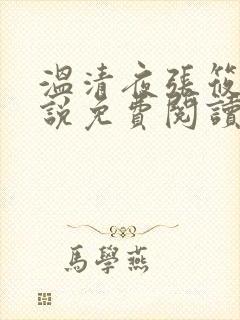 溫清夜張筱
說免費閱讀
馬學燕